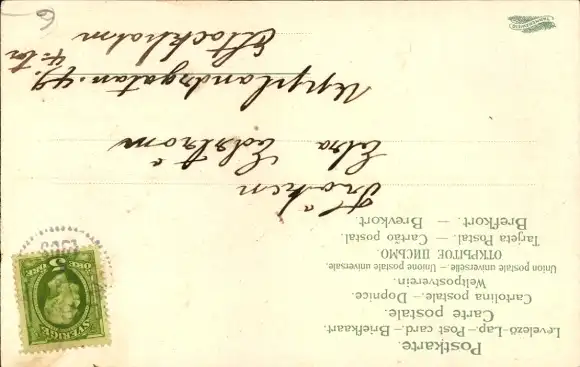 Postkarte.
Levelező-Lap.—Post card.—Briefkaart.
Carte postale.
Cartolina postale.—Dopnice.
Weltpostverein.
Union postale universelle.—Unione postale universale.
ОТКРЫТОЕ ПИСЬМО.
Tarjeta Postal.—Cartão postal.
Brefkort.—Brevkort.
SVERIGE
5 ÖRE
Fröken
Edström
Upplandsgatan. 49.
4. tr
Stockholm
6